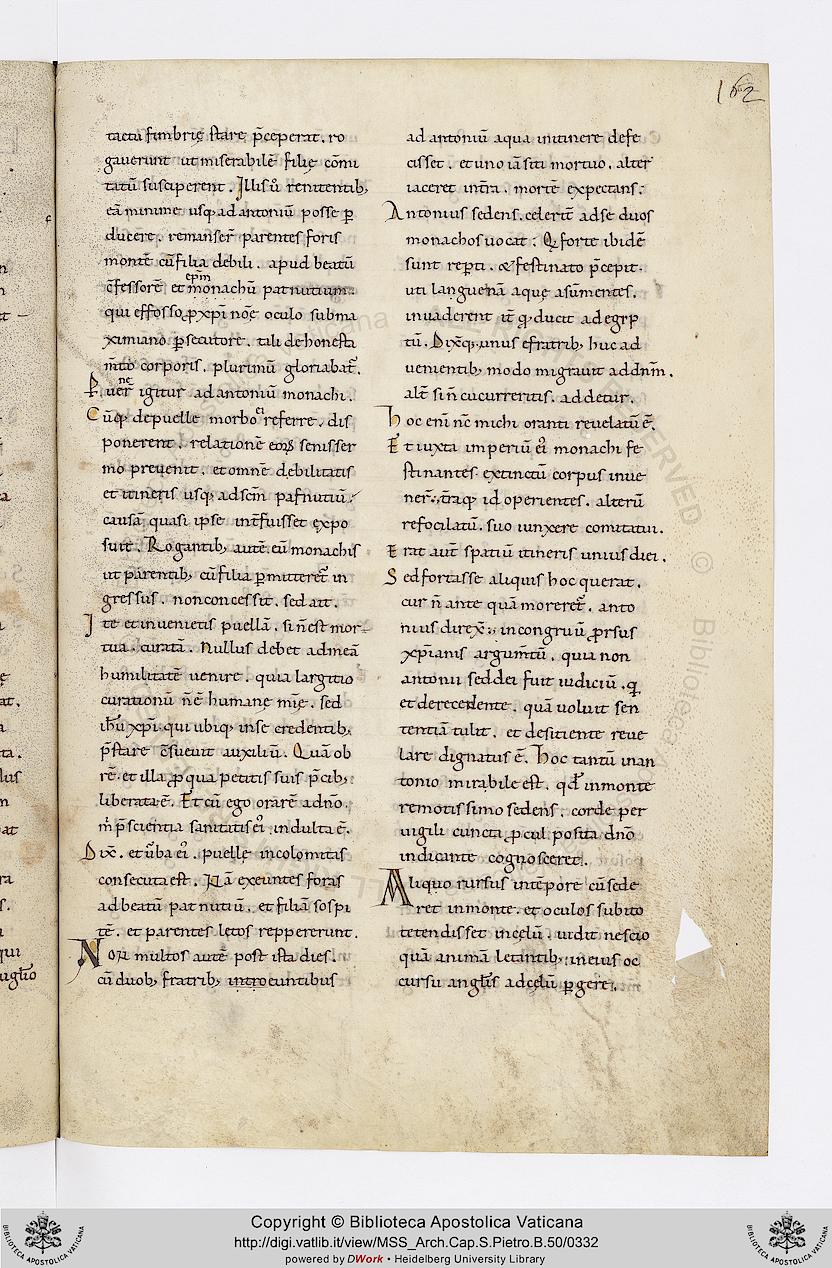 162
tactu fimbrię stare p̄ceperat. ro
gauerunt ut miserabilē filię cōmi
tatū susciperent. Illis ů renitentib;
eā minime usq; ad antoniū posse ꝑ
ducere. remanser̄ parentes foris
montē cū filia debili. apud beatū
c̄fessorē et monachū patnutium.
epm̄
qui effosso ꝓ xp̄i nōe oculo subma
ximiano ꝑsecutore. tali dehonesta
m̄tio corporis. plurimū gloriabat̄.
P̱uer̄ igitur ad antoniū monachi.
ne
Cūq; de puelle morbo ei referre. dis
ponerent. relationē eoꝝ senisser
mo preuenit. et omnē debilitatis
et itineris usq; ad sc̄m pafnutiū
causā quasi ipse int̄fuisset expo
suit. Rogantib; autē eū monachis
ut parentib; cū filia ꝑmitteret̄ in
gressus. non concessit. sed ait.
Ite et inuenietis puellā. si n̄ est mor
tua. curatā. Nullus debet ad meā
humilitatē uenire. quia largitio
curationū n̄ ē humanę mīę. sed
ih̄u xp̄i. qui ubiq; in se credentib;
p̄stare c̄sueuit auxiliū. Quā ob
rē. et illa ꝓ qua petitis suis p̄cib;
liberata ē. Et cū ego orarē ad dn̄o.
m̄ p̄scientia sanitatis ei indulta ē.
Dix̄. et ůba ei. puellę incolomitas
consecuta est. Nā exeuntes foras
ad beatū patnutiū. et filiā sospi
tē. et parentes lętos reppererunt.
Non multos autē post ista dies.
cū duob; fratrib; introeuntibus
ad antoniū aqua in itinere defe
cisset. et uno iā siti mortuo. alter
iaceret int̄ra. mortē expectans.
Antonius sedens. celerit̄ ad se duos
monachos uocat. Qi forte ibidē
sunt reꝑti. & festinato p̄cepit.
uti languenā aquę asūmentes.
inuaderent it̄ qd̄ ducit ad egyp
tū. Dixitq; unus e fratrib; huc ad
uenientib; modo migrauit ad dn̄m.
alt̄ si n̄ cucurreritis. addetur.
Hoc eni nc̄ michi oranti reuelatū ē.
Et iuxta imperiū ei monachi fe
stinantes extinctū corpus inue
ner̄. t̄raq; id operientes. alterū
refocilatū. suo iunxere comitatui.
Erat aut̄ spatiū itineris unius diei.
Sed fortasse aliquis hoc querat.
cur n̄ ante quā moreret̄. anto
nius direx̄. incongruū ꝓrsus
xp̄ianis argum̄tū. quia non
antonii sed dei fuit iudiciū. q
et de recedente. quā uoluit sen
tentiā tulit. et de sitiente reue
lare dignatus ē. Hoc tantū in an
tonio mirabile est. qd̄ in monte
remotissimo sedens. corde per
uigili cuncta ꝓcul posita dn̄o
indicante cognosceret.
Aliquo rursus in tēpore cū sede
ret in monte. et oculos subito
tetendisset in cęlū. uidit nescio
quā animā lętantib; in eius oc
cursu angl̄is ad cęlū ꝑgere.
Copyright © Biblioteca Apostolica Vaticana
http://digi.vatlib.it/view/MSS_Arch.Cap.S.Pietro.B.50/0332
powered by DWork • Heidelberg University Library